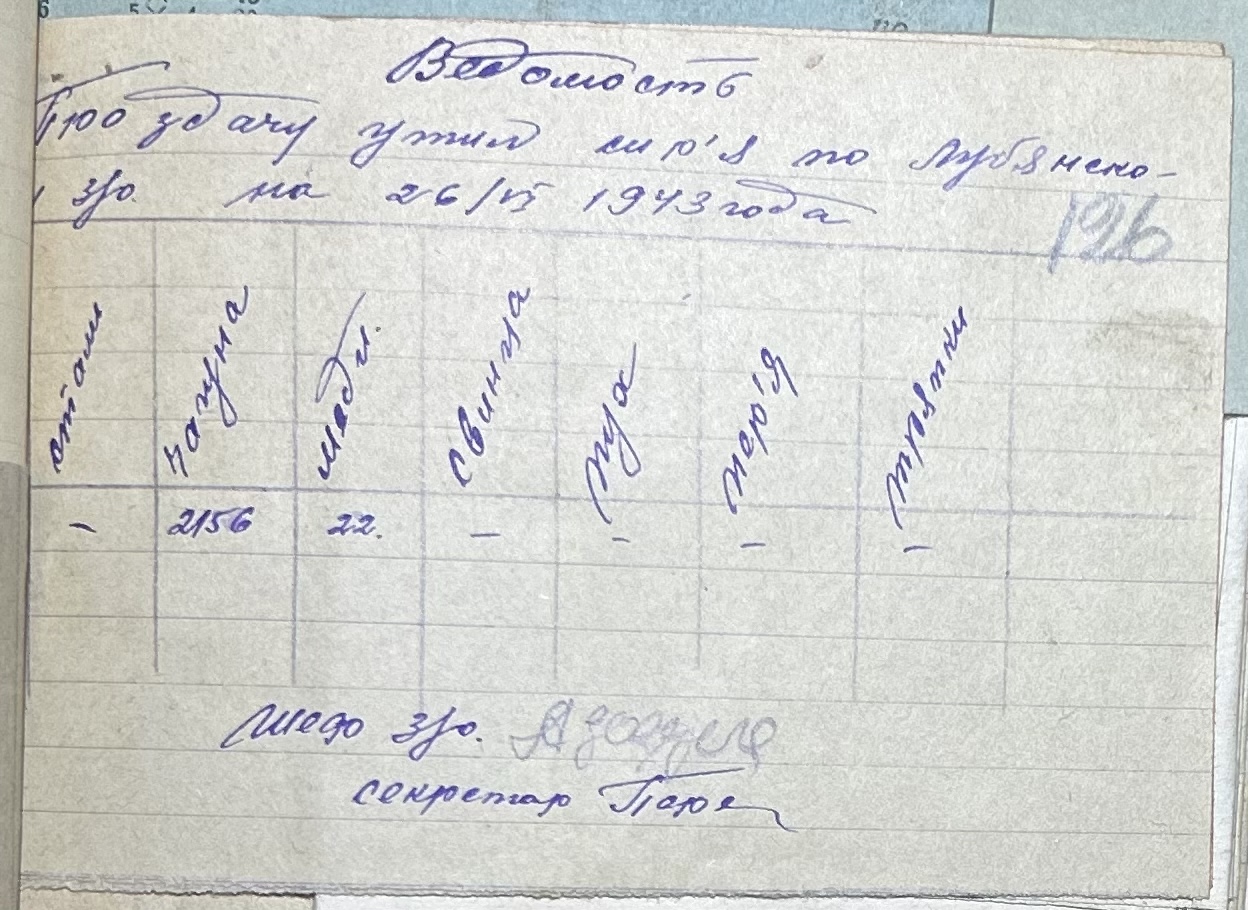 Ведомость
Про здачу утил сир'я по Лубянско-
з/о. на 26/VI 1943 года
126
стали чагуна меди. свинца пуа пер'я тряпки
- 2156 22. - - - -
Шеф з/о.
секретар